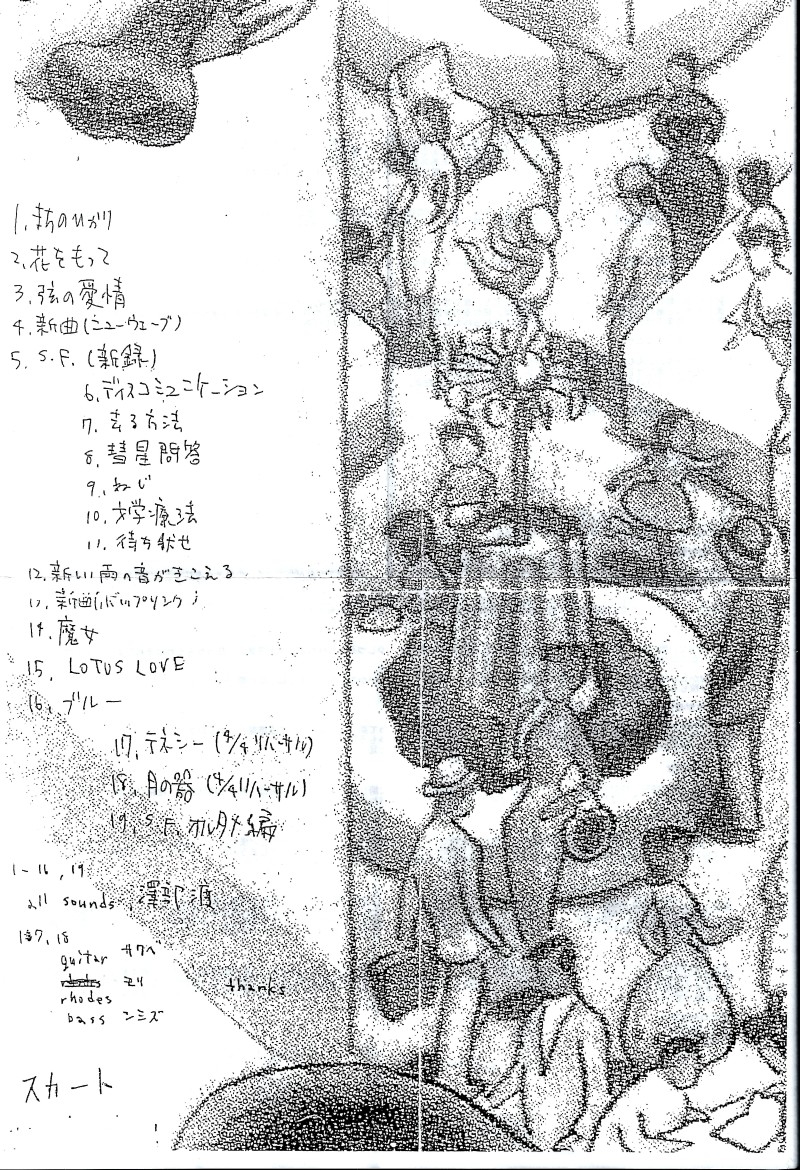 1. まちのひかり
2. 花をもって
3. 弦の愛情
4. 新曲(ニューウェーブ)
5. S.F. (新録)
6. ディスコミュニケーション
7. 去る方法
8. 彗星問答
9. ねじ
10. 文学療法
11. 待ち伏せ
12. 新しい雨の音がきこえる
新曲
14. 魔女
15. LOTUS LOVE
16. ブルー
17. テネシー (4/4リハーサル)
18. 月の器 (4/4リハーサル)
19. S.F. オルタナ編
1-16, 19
all sounds 澤部渡
18
guitar サワベ
rhodes
bass シミズ
thanks
スカート